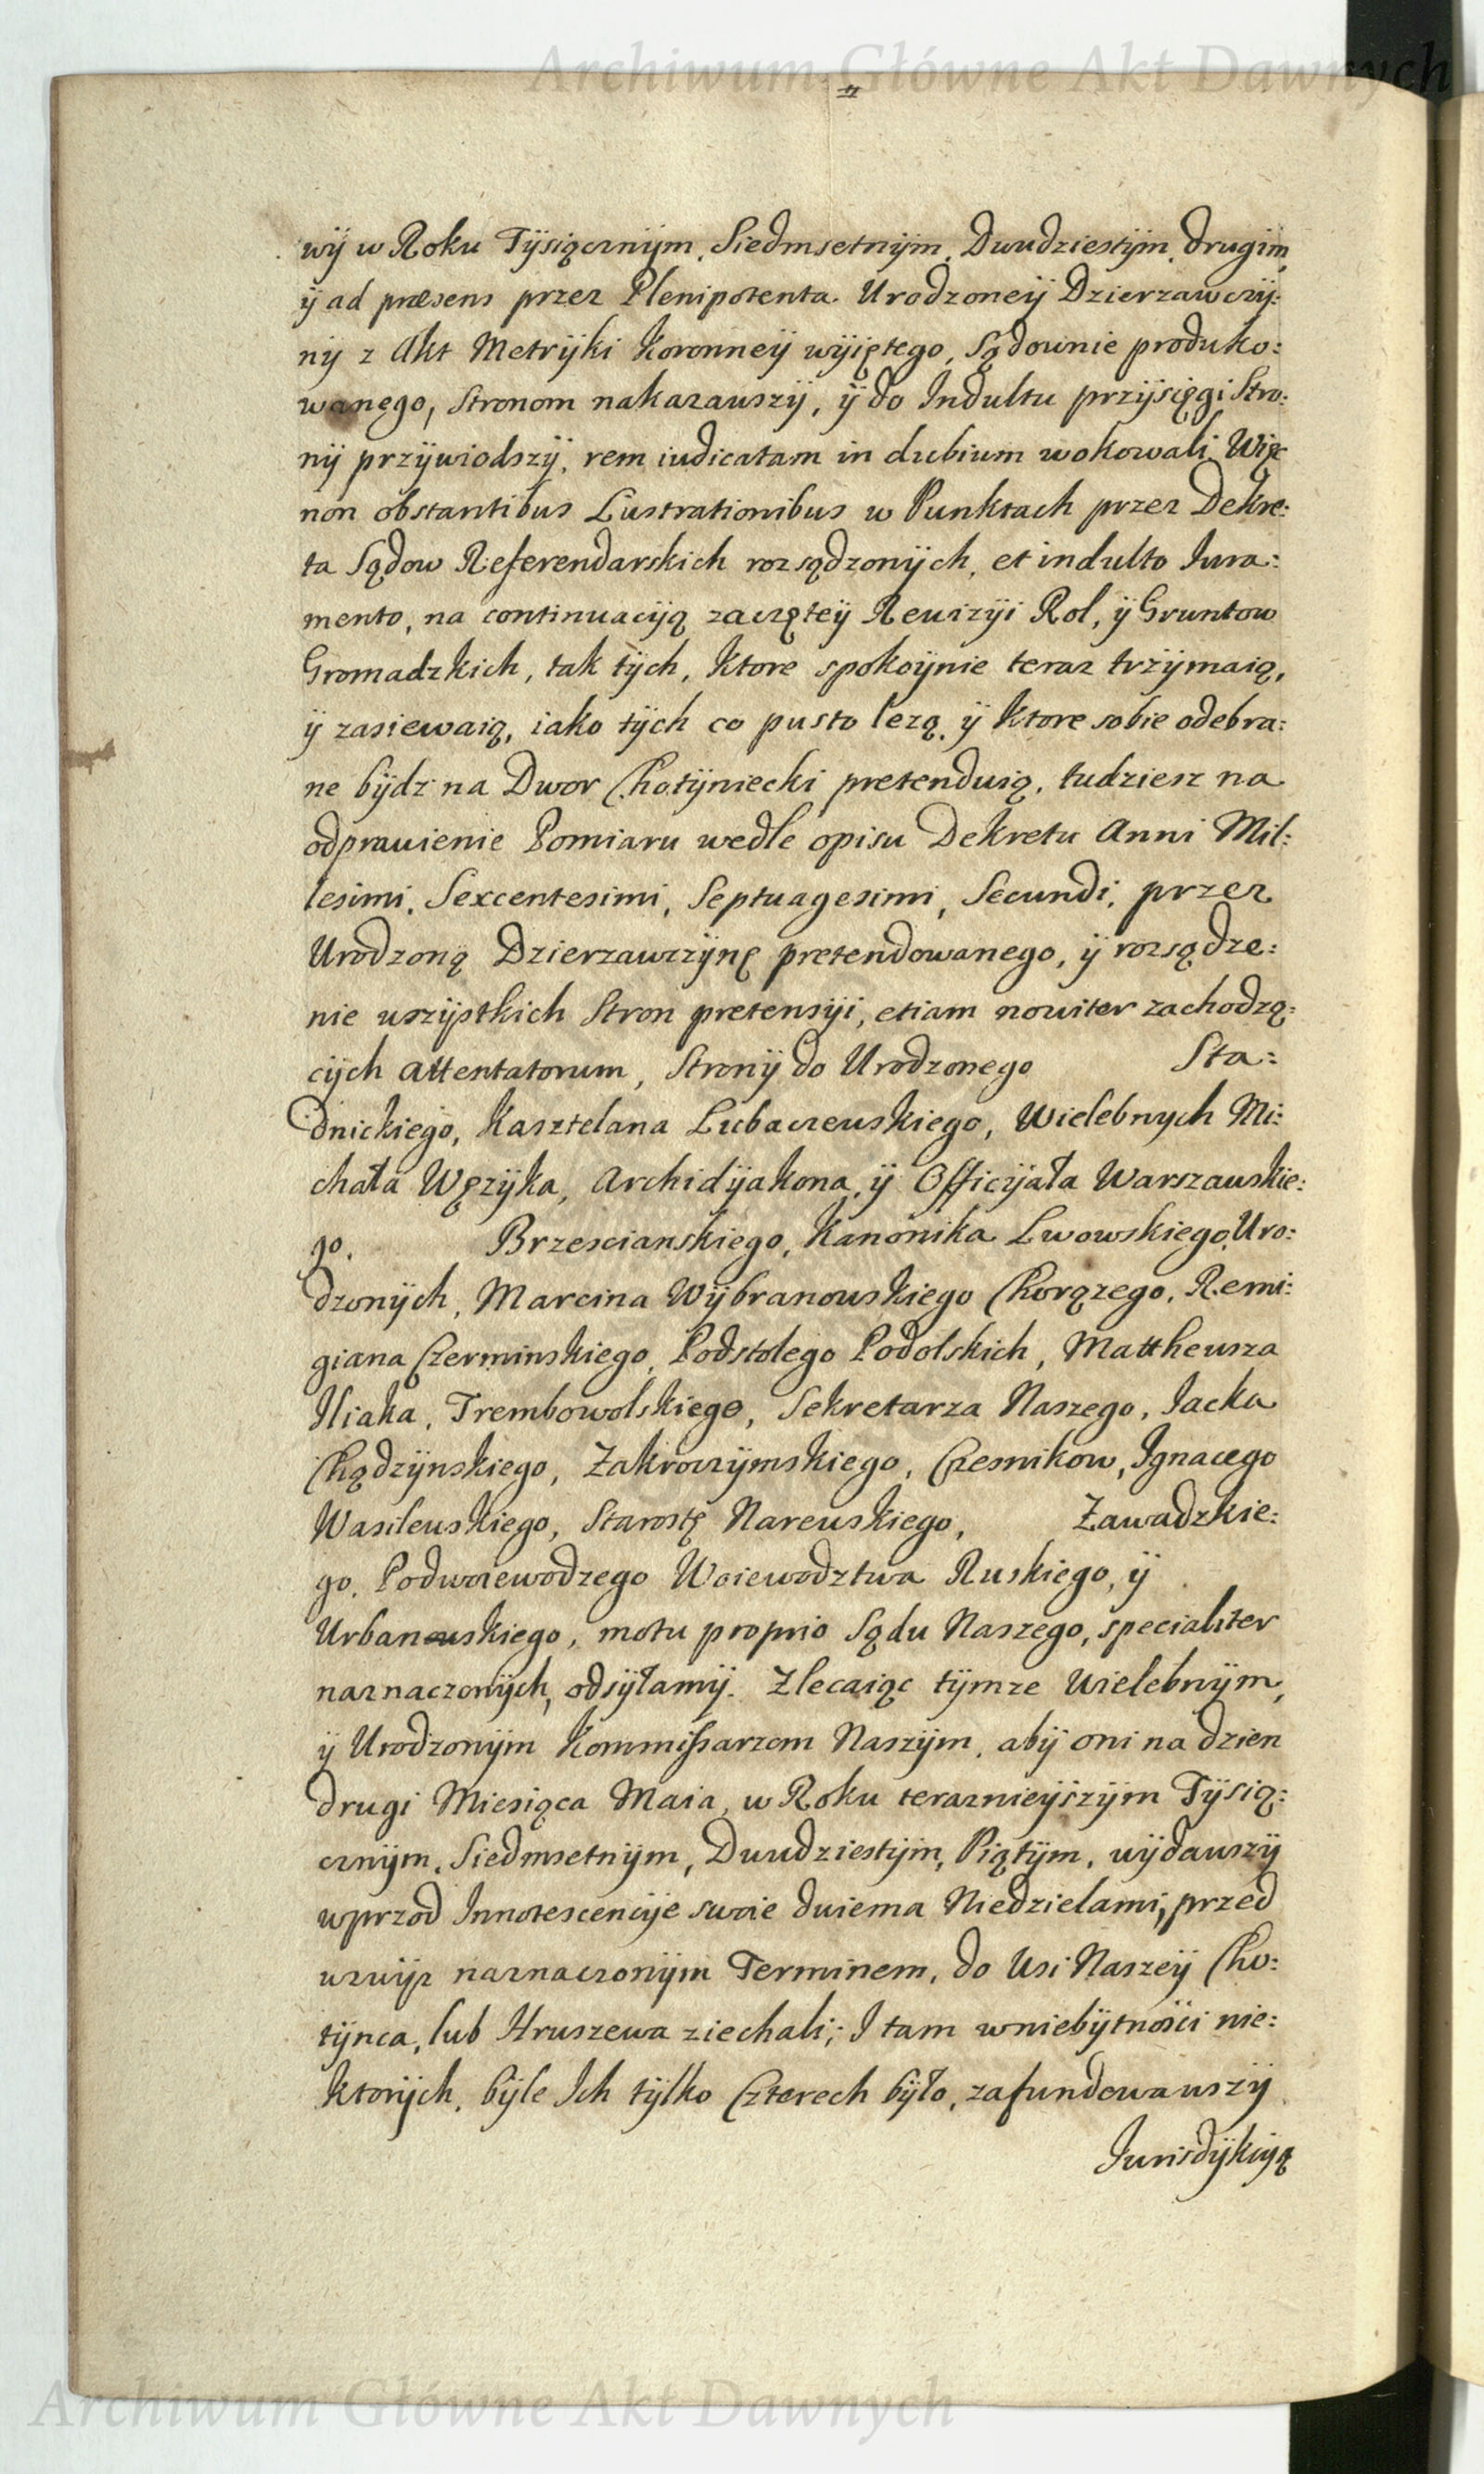 Archiwum Główne Akt Dawnych
wÿ w Roku Tÿsiącznÿm, Siedmsetnÿm, Dwudziestÿm, drugim,
ÿ ad præsens przez Plenipotenta Urodzoneÿ Dzierzawczÿ:
nÿ z Akt Metrÿki Koronneÿ wÿiętego, Sądownie produko:
wanego, Stronom nakazawszÿ, ÿ do Indultu przÿsięgi Stro:
nÿ przÿwiodszÿ, rem iudicatam in dubium wokowali. Więc
non obstantibus Lustrationibus w Punktach przez Dekre:
ta Sądow Referendarskich rozsądzonÿch, et indulto Iura:
mento, na continuacÿą zaczęteÿ Rewizÿi Rol, ÿ Gruntow
Gromadzkich, tak tÿch, ktore spokoÿnie teraz trzÿmaią,
ÿ zasiewaią, iako tÿch co pusto lezą, ÿ ktore sobie odebra:
ne bÿdz na Dwor Chotÿniecki pretenduią, tudziesz na
odprawienie Pomiaru wedle opisu Dekretu Anni Mil:
lesimi, Sexcentesimi, Septuagesimi, Secundi, przez
Urodzoną Dzierzawczÿnę pretendowanego, ÿ rozsądze:
nie wszÿstkich Stron pretensÿi, etiam noviter zachodzą:
cÿch attentatorum, Stronÿ do Urodzonego Sta:
dnickiego, Kasztelana Lubaczewskiego, Wielebnych Mi:
chała Węzÿka, Archidÿakona, ÿ Officÿała Warszawskie:
go, Brzescianskiego, Kanonika Lwowskiego, Uro:
dzonÿch, Marcina Wÿbranowskiego Chorązego, Remi:
giana Czerminskiego, Podstolego Podolskich, Mattheusza
Iliaka, Trembowolskiego, Sekretarza Naszego, Iacka
Chądzÿnskiego, Zakroczÿmskiego, Czesnikow, Ignacego
Wasilewskiego, Starostę Narewskiego, Zawadzkie:
go, Podwoiewodzego Woiewodztwa Ruskiego, ÿ
Urbanowskiego, motu proprio Sądu Naszego, specialiter
naznaczonÿch, odsÿłamÿ. Zlecaiąc tÿmze Wielebnÿm,
ÿ Urodzonÿm Kommissarzom Naszÿm, abÿ oni na dzien
drugi Miesiąca Maia, w Roku teraznieÿszÿm Tÿsią:
cznÿm, Siedmsetnÿm, Dwudziestÿm, Piątÿm, wÿdawszÿ
wprzod Innotescencÿe swoie dwiema Niedzielami, przed
wzwÿz naznaczonÿm Terminem, do Wsi Naszeÿ Cho:
tÿnca, lub Hruszewa ziechali; I tam w niebÿtnosci nie:
ktorÿch, bÿle Ich tÿlko Czterech bÿło, zafundowawszÿ
Iurisdÿkcÿą
Archiwum Główne Akt Dawnych